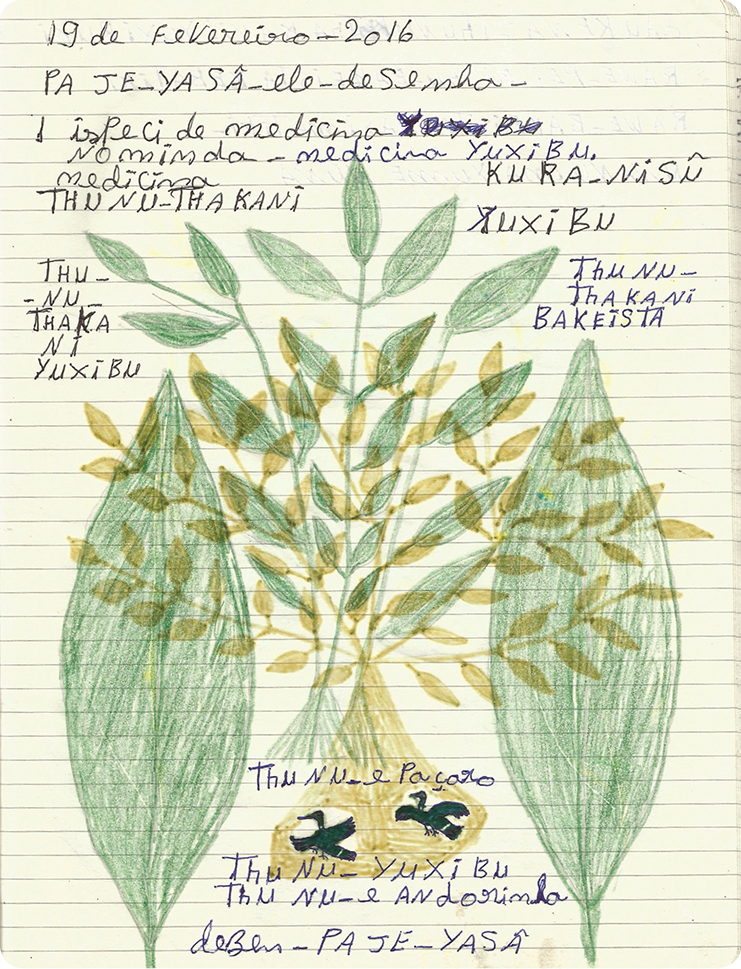 19 de Fevereiro-2016
PAJE-YASÂ-ele-desenha-
1 ispeci de medicina
Nominda-medicina YUXIBU.
medicina
THUNU-THAKANI
KURA-NISÛ
YUXIBU
THU-
-NU-
THAKA
NI
YUXIBU
ThuNU-
ThAKANI
BAKEISTA
ThuNU-e Paçaro
ThuNU-YUXIBU
ThuNU-e ANdorinha
deBen-PAJE-YASÂ